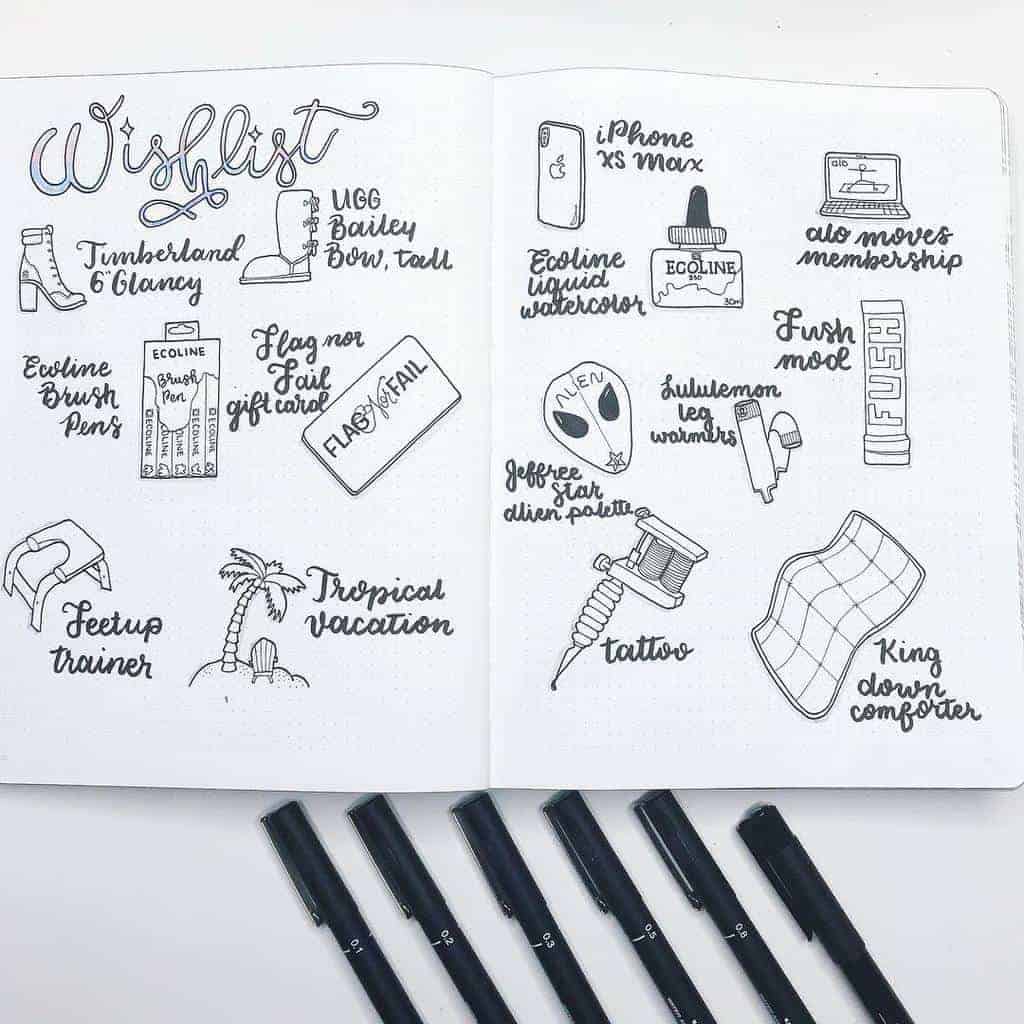 Wishlist
Timberland
6" Glancy
UGG
Bailey
Bow, tall
Ecoline
Brush
Pens
ECOLINE
Brush
Pen
ECOLINE
ECOLINE
ECOLINE
ECOLINE
Flag nor
Fail
gift card
FLAG nor FAIL
Feetup
trainer
Tropical
vacation
iPhone
XS Max
Ecoline
liquid
watercolor
ECOLINE
30m
alo
alo moves
membership
Fush
mod
FUSH
ALIEN
Jeffree
Star
Alien palette
Lululemon
leg
warmers
tattoo
King
down
comforter
0.1
0.2
0.3
0.5
0.8